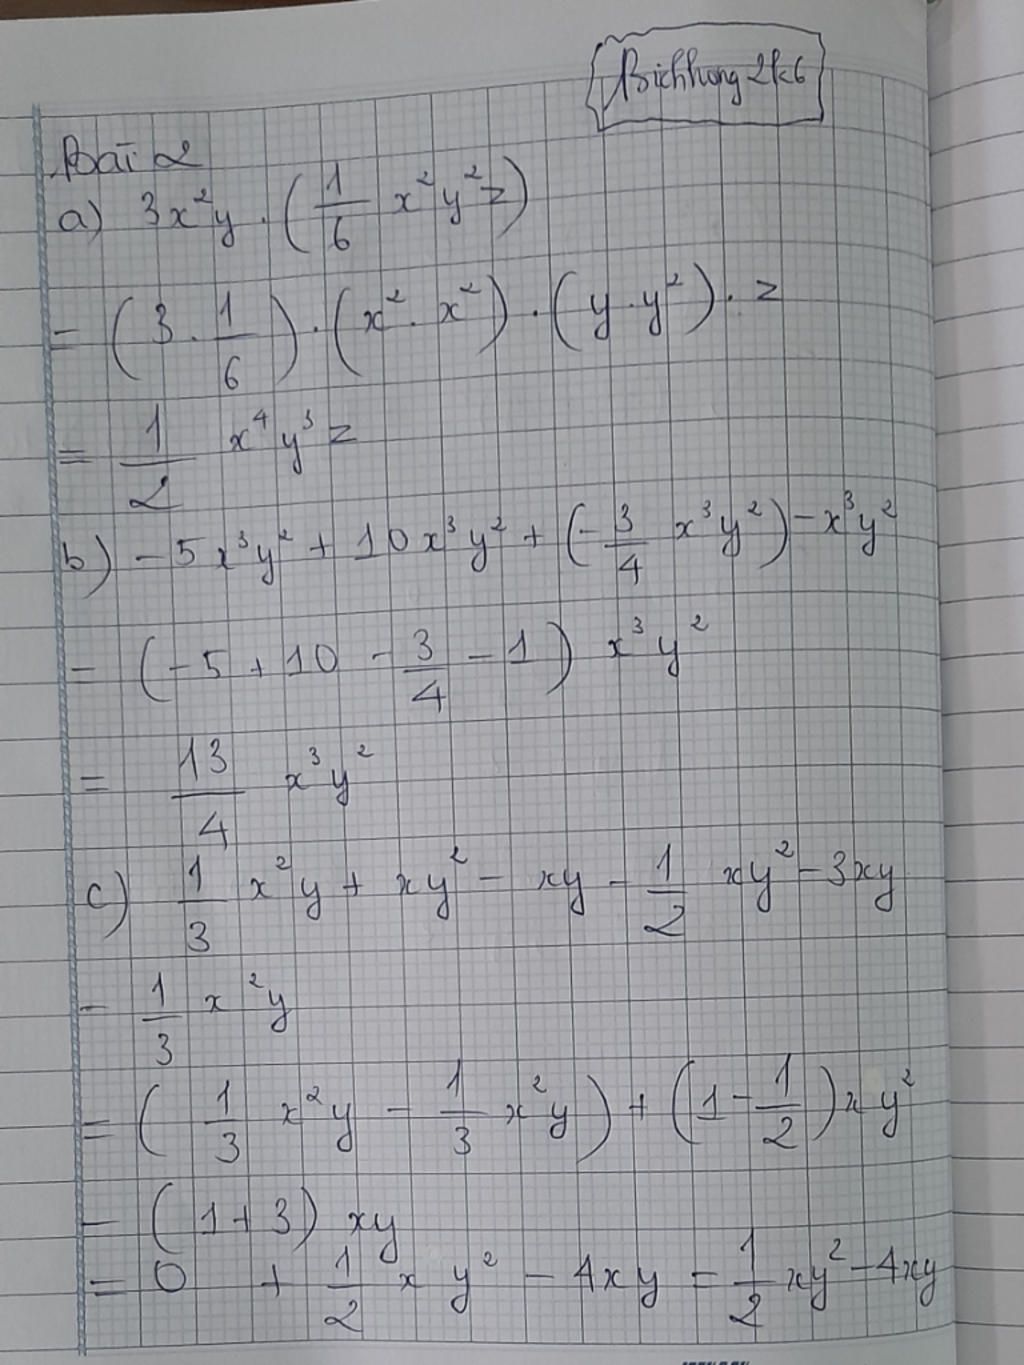 Bichhong2k6
Bài 2
a) 3x²y . (1/6 x²y²z)
= (3 . 1/6) . (x² . x²) . (y . y²) . z
= 1/2 x⁴y³z
b) -5x³y² + 10x³y² + (-3/4 x³y²) - x³y²
= (-5 + 10 - 3/4 - 1) x³y²
= 13/4 x³y²
c) 1/3 x²y + xy² - xy - 1/2 xy² - 3xy
- 1/3 x²y
= (1/3 x²y - 1/3 x²y) + (1 - 1/2) xy²
- (1+3) xy
= 0 + 1/2 xy² - 4xy = 1/2 xy² - 4xy